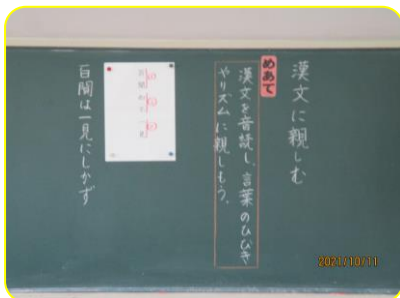 漢文に親しむ
めあて
漢文を音読し、言葉のひびき
やリズムに親しもう。
百聞は一見にしかず
2021/10/11